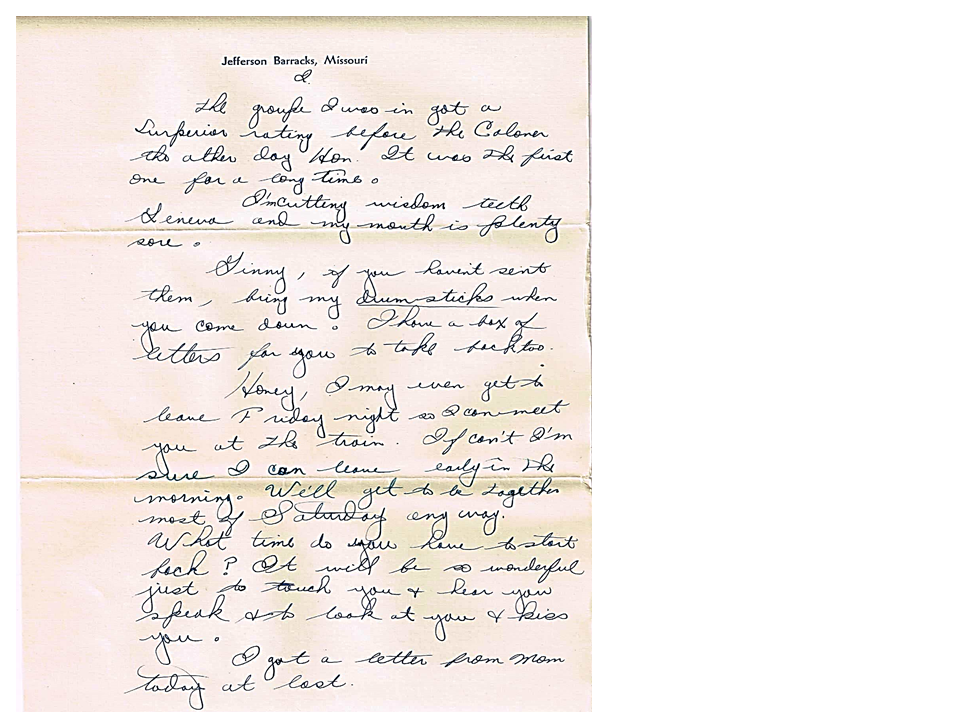 Jefferson Barracks, Missouri
2.
The groupe I was in got a
Surperior rating before the Coloner
the other day Hon. It was the first
one for a long time.
I'm cutting wisdom teeth
Geneva and my mouth is plenty
sore.
Ginny, if you haven't sent
them, bring my drumsticks when
you come down. I have a box of
letters for you to take back too.
Honey, I may even get to
leave Friday night so I can meet
you at the train. If can't I'm
sure I can leave early in the
morning. We'll get to be together
most of Saturday any way.
What time do you have to start
back? It will be so wonderful
just to touch you & hear you
speak & to look at you & kiss
you.
I got a letter from Mom
today at last.